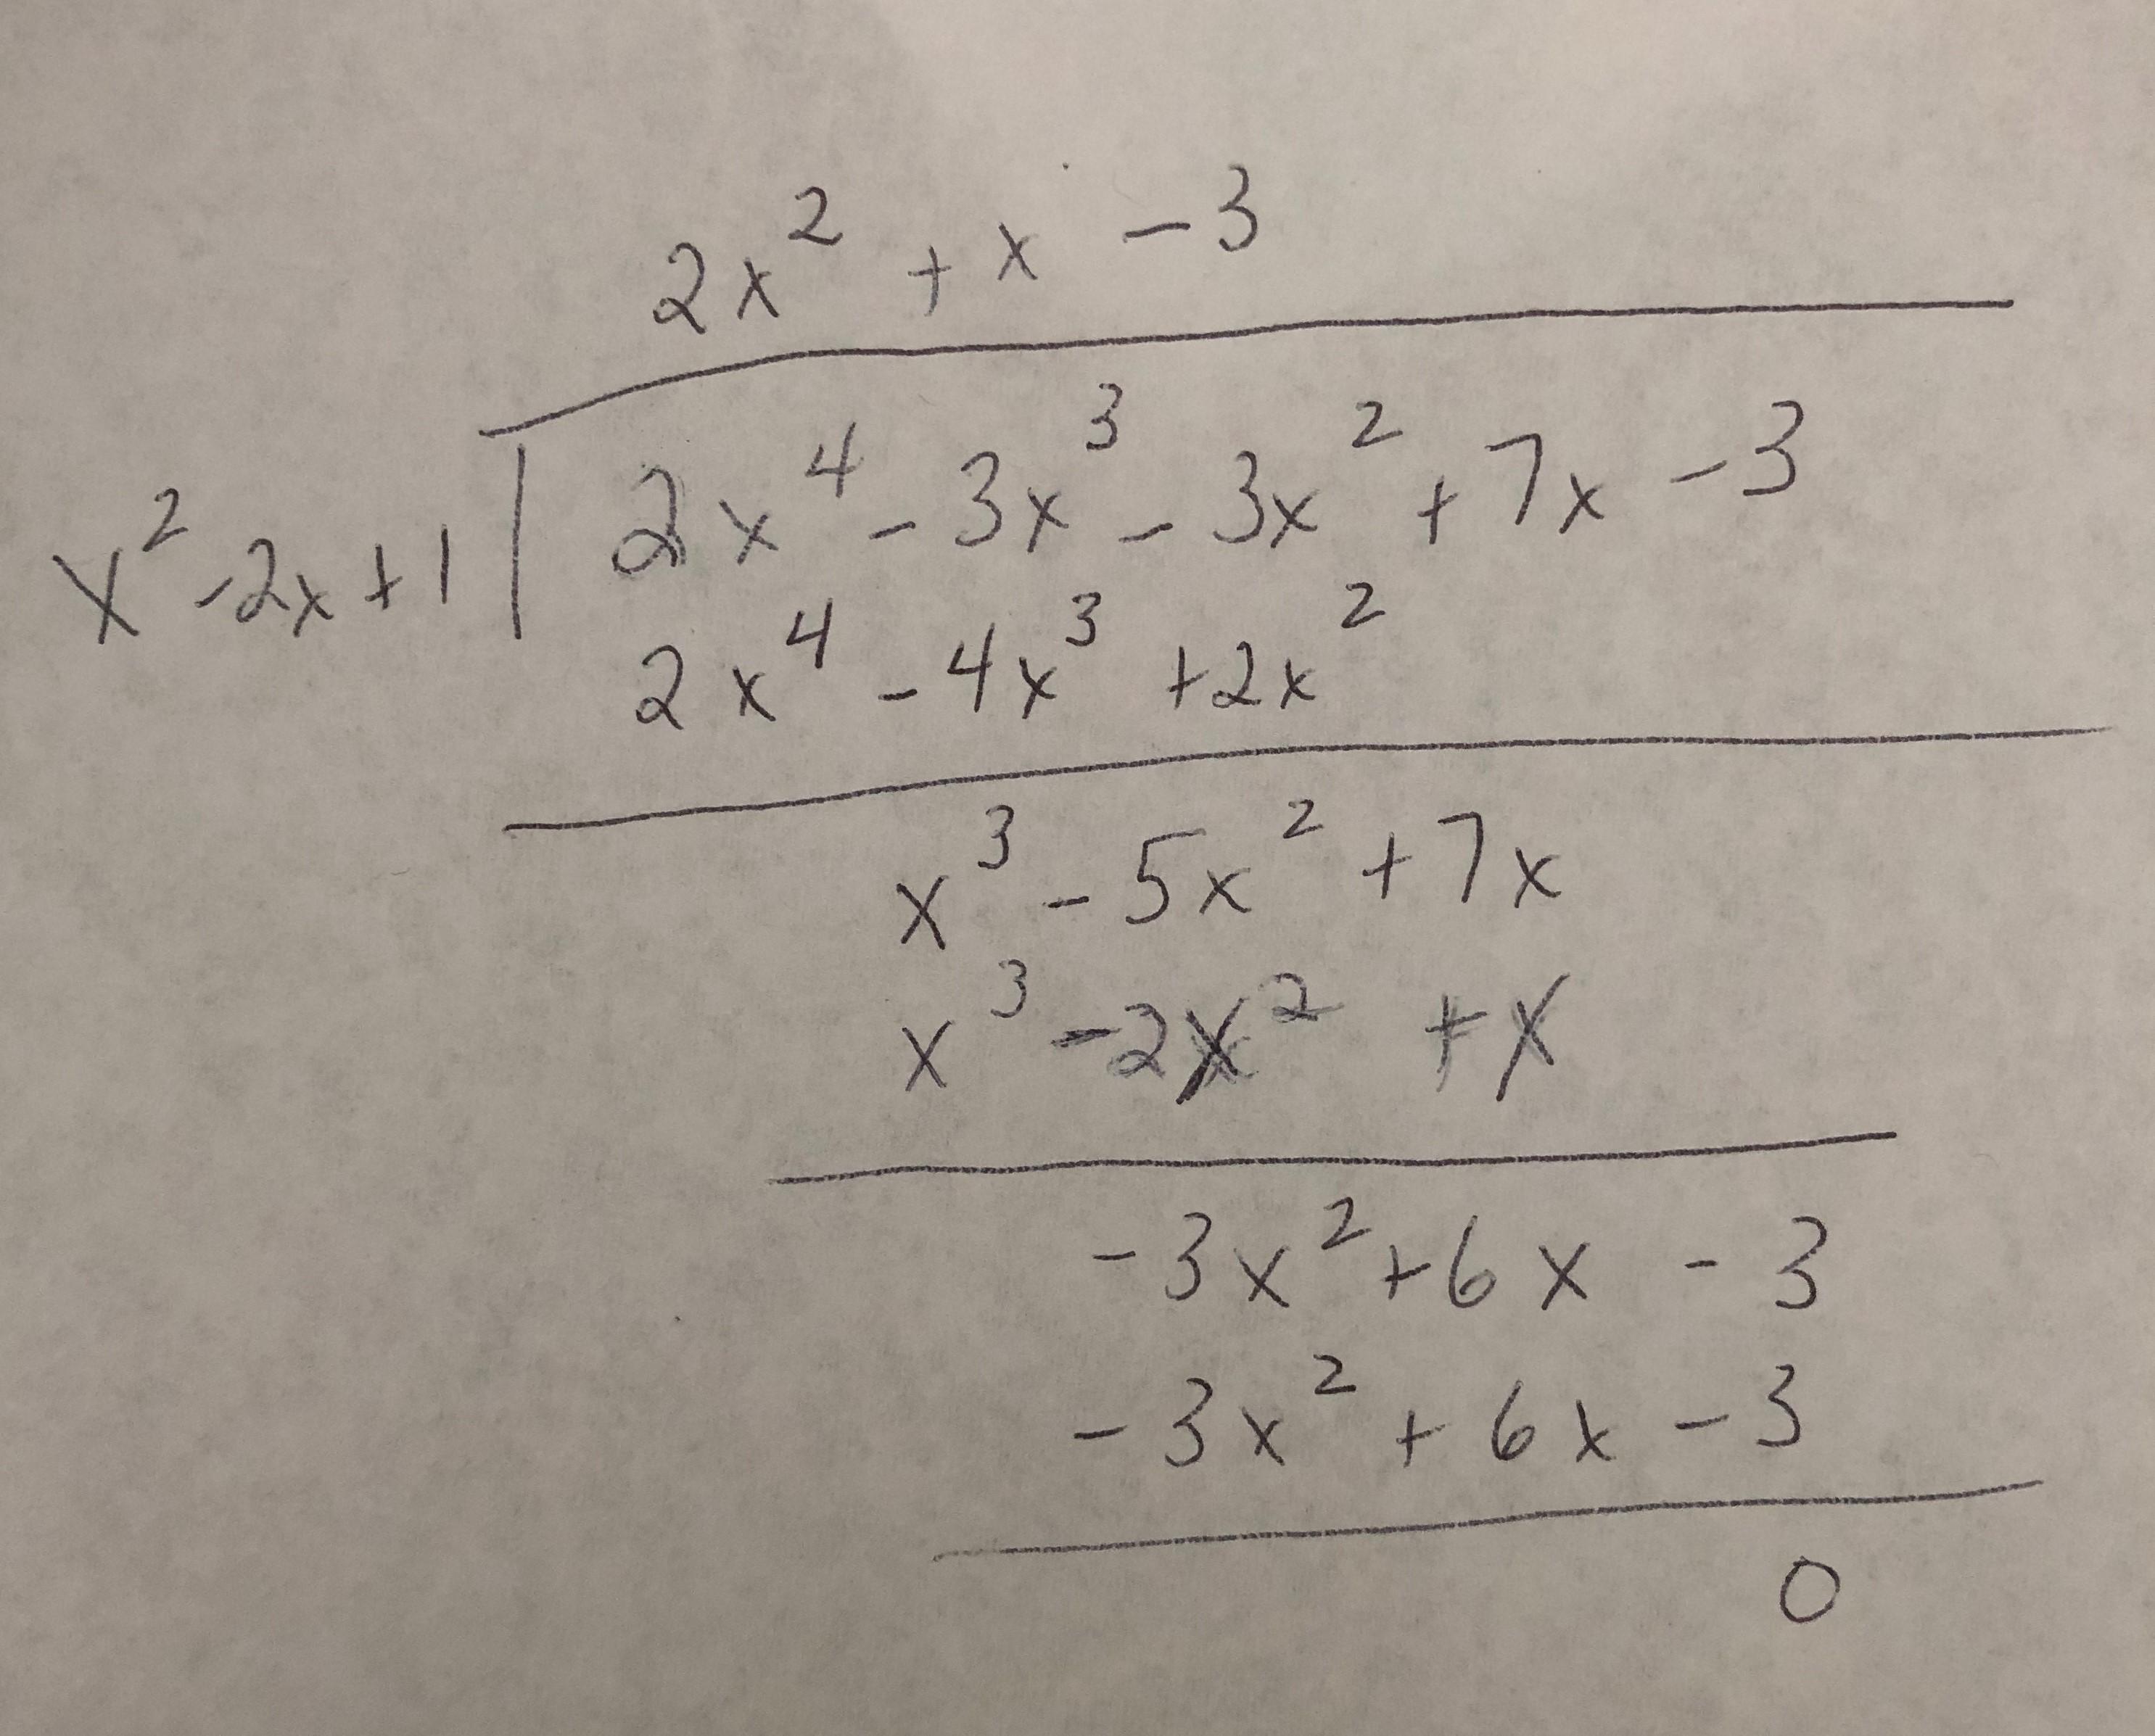 2x² + x - 3
x² - 2x + 1 | 2x⁴ - 3x³ - 3x² + 7x - 3
2x⁴ - 4x³ + 2x²
x³ - 5x² + 7x
x³ - 2x² + x
-3x² + 6x - 3
-3x² + 6x - 3
0